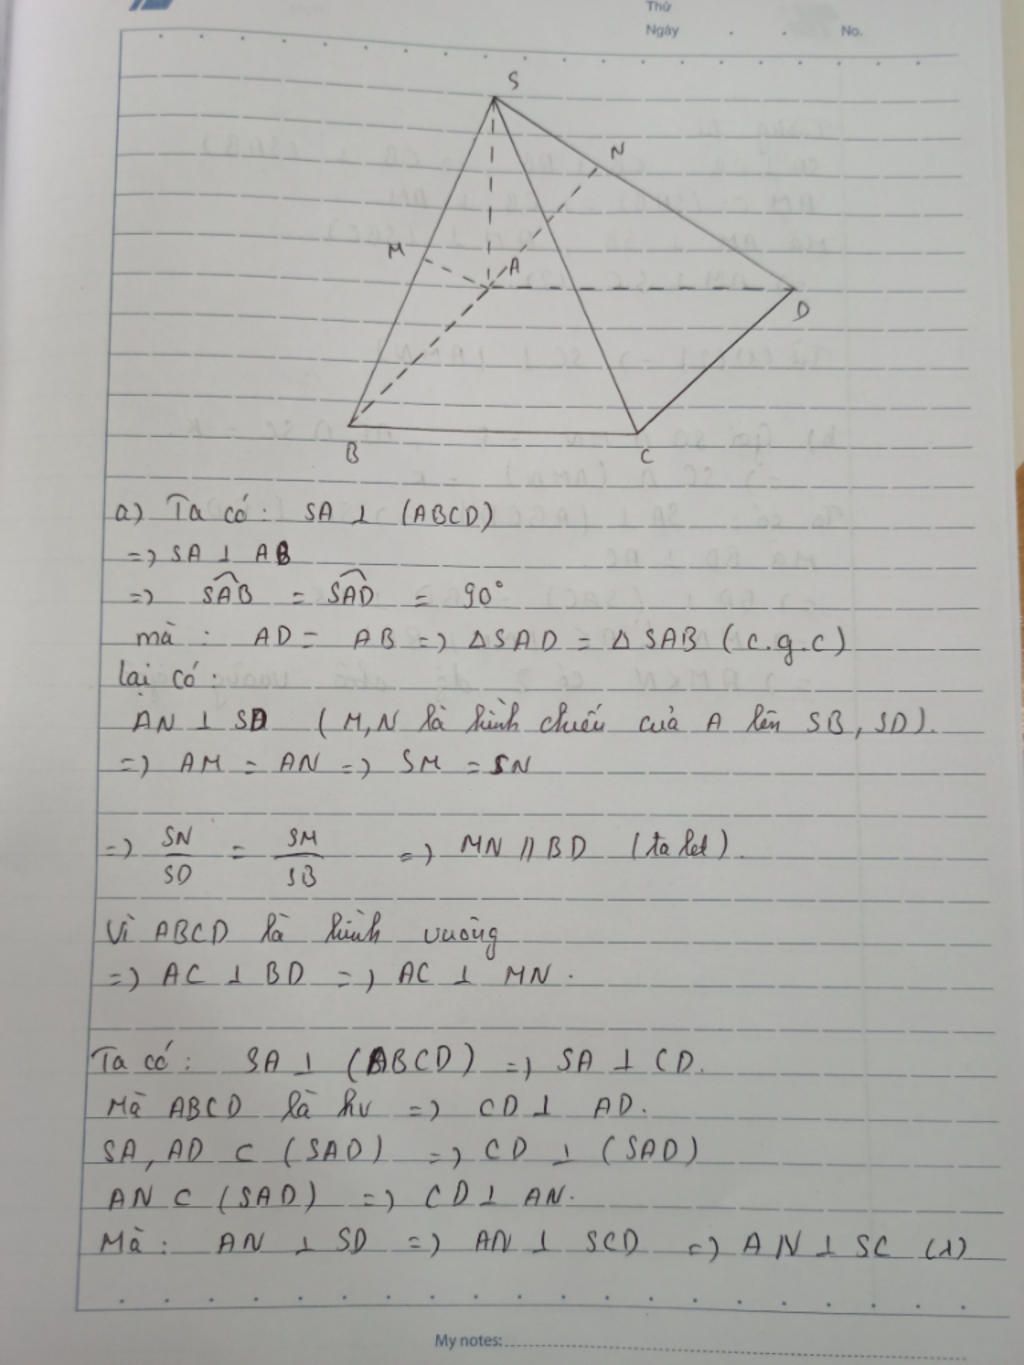 Thứ
Ngày . . No.
S
N
M
A
D
B
C
a) Ta có: SA ⊥ (ABCD)
=) SA ⊥ AB
=) SAB = SAD = 90°
mà : AD = AB =) ΔSAD = ΔSAB (c.g.c)
lại có:
AN ⊥ SD (M,N là hình chiếu của A lên SB, SD).
=) AM = AN =) SM = SN
=) SN/SD = SM/SB =) MN // BD (ta let).
Vì ABCD là hình vuông
=) AC ⊥ BD =) AC ⊥ MN.
Ta có: SA ⊥ (ABCD) =) SA ⊥ CD.
Mà ABCD là hv =) CD ⊥ AD.
SA, AD ⊂ (SAD) =) CD ⊥ (SAD)
AN ⊂ (SAD) =) CD ⊥ AN.
Mà: AN ⊥ SD =) AN ⊥ SCD =) AN ⊥ SC (1)
My notes: